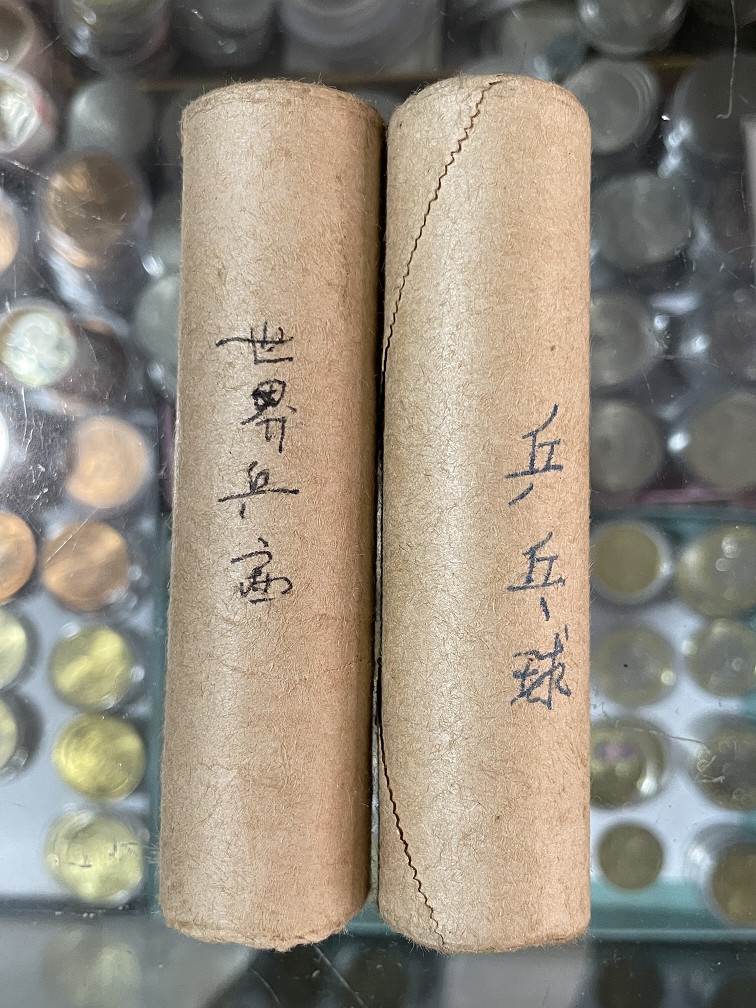 世界乒
乒乓球